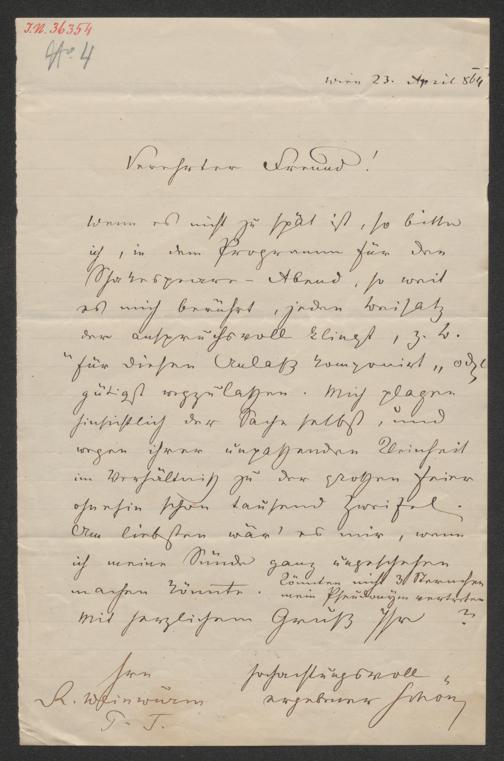 I.N. 36354
No 4
Wien 23. April 864
Verehrter Freund!
Wenn es nicht zu spät ist, so bitte
ich, in dem Programm für den
Shakespeare-Abend, so weit
es mich berührt, jeden Beisatz
der anspruchsvoll klingt, z. B.
"für diesen Anlaß komponirt" odgl
gütigst wegzulassen. Mich plagen
hinsichtlich der Sache selbst, und
wegen ihrer unpassenden Kleinheit
im Verhältniß zu der großen Feier
ohnehin schon tausend Zweifel.
Am liebsten wär' es mir, wenn
ich meine Sünde ganz ungeschehen
machen könnte. Könnten nicht 3 Sternchen
mein Pseudonym vertreten?
Mit herzlichem Gruß Ihr
hochachtungsvoll
ergebener Schön
Hrn
R. Weinwurm